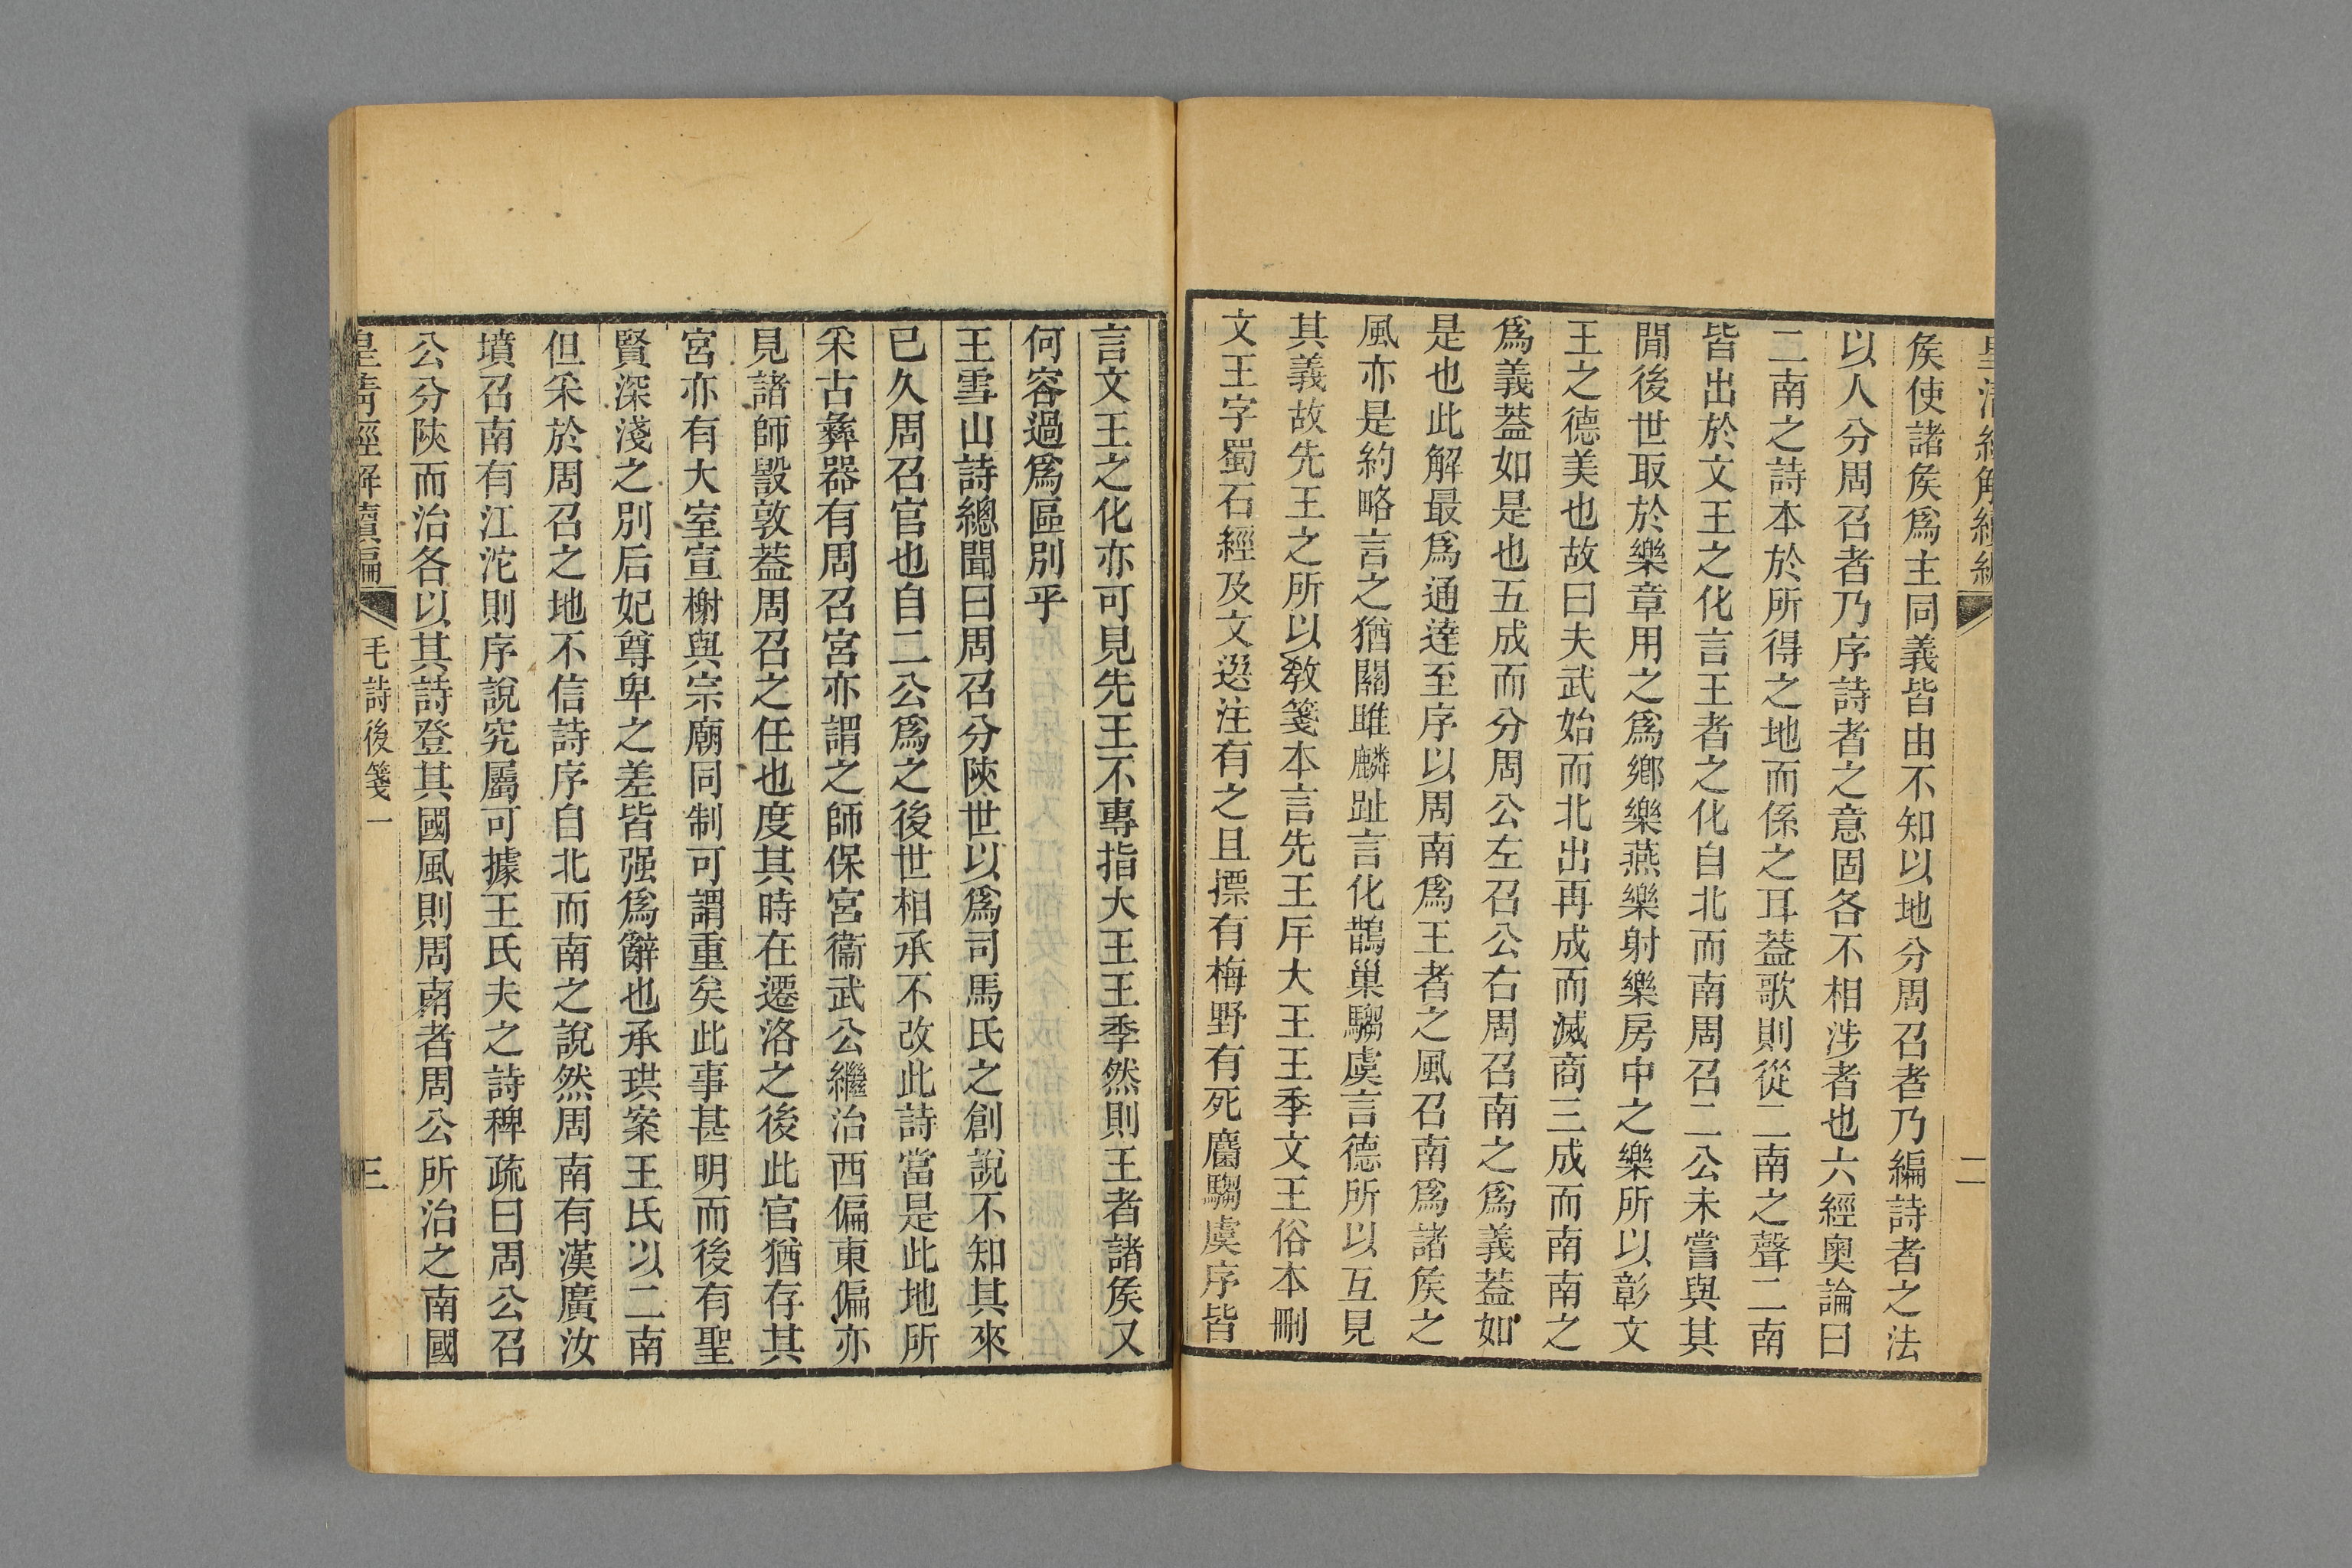 皇清經解續編
二
矦使諸矦爲主同義皆由不知以地分周召者乃編詩者之法
以人分周召者乃序詩者之意固各不相涉者也六經奧論曰
二南之詩本於所得之地而係之耳葢歌則從二南之聲二南
皆出於文王之化言王者之化自北而南周召二公未嘗與其
閒後世取於樂章用之爲鄉樂燕樂射樂房中之樂所以彰文
王之德美也故曰夫武始而北出再成而滅商三成而南南之
爲義葢如是也五成而分周公左召公右周召南之爲義葢如
是也此解最爲通達至序以周南爲王者之風召南爲諸矦之
風亦是約略言之猶關雎麟趾言化鵲巢騶虞言德所以互見
其義故先王之所以敎箋本言先王斥大王王季文王俗本刪
文王字蜀石經及文選注有之且摽有梅野有死麕騶虞序皆
言文王之化亦可見先王不專指大王王季然則王者諸矦又
何容過爲區別乎
王雪山詩總聞曰周召分陝世以爲司馬氏之創說不知其來
已久周召官也自二公爲之後世相承不改此詩當是此地所
采古彝器有周召宮亦謂之師保宮衞武公繼治西偏東偏亦
見諸師毀敦葢周召之任也度其時在遷洛之後此官猶存其
宮亦有大室宣榭與宗廟同制可謂重矣此事甚明而後有聖
賢深淺之別后妃尊卑之差皆强爲辭也承珙案王氏以二南
但采於周召之地不信詩序自北而南之說然周南有漢廣汝
墳召南有江沱則序說究屬可據王氏夫之詩稗疏曰周公召
公分陝而治各以其詩登其國風則周南者周公所治之南國
皇清經解續編
毛詩後箋一
三